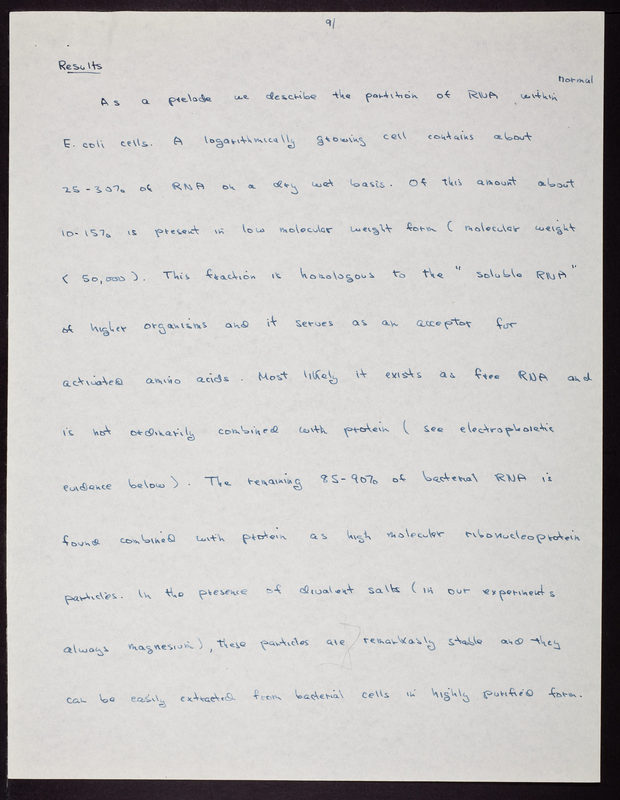 9/
Results
normal
As a prelude we describe the partition of RNA within
E. coli cells. A logarithmically growing cell contains about
25-30% of RNA on a dry wet basis. Of this amount about
10-15% is present in low molecular weight form ( molecular weight
< 50,000 ). This fraction is homologous to the "soluble RNA"
of higher organisms and it serves as an acceptor for
activated amino acids. Most likely it exists as free RNA and
is not ordinarily combined with protein ( see electrophoretic
evidence below ). The remaining 85-90% of bacterial RNA is
found combined with protein as high molecular ribonucleoprotein
particles. In the presence of divalent salts ( in our experiments
always magnesium ), these particles are remarkably stable and they
can be easily extracted from bacterial cells in highly purified form.